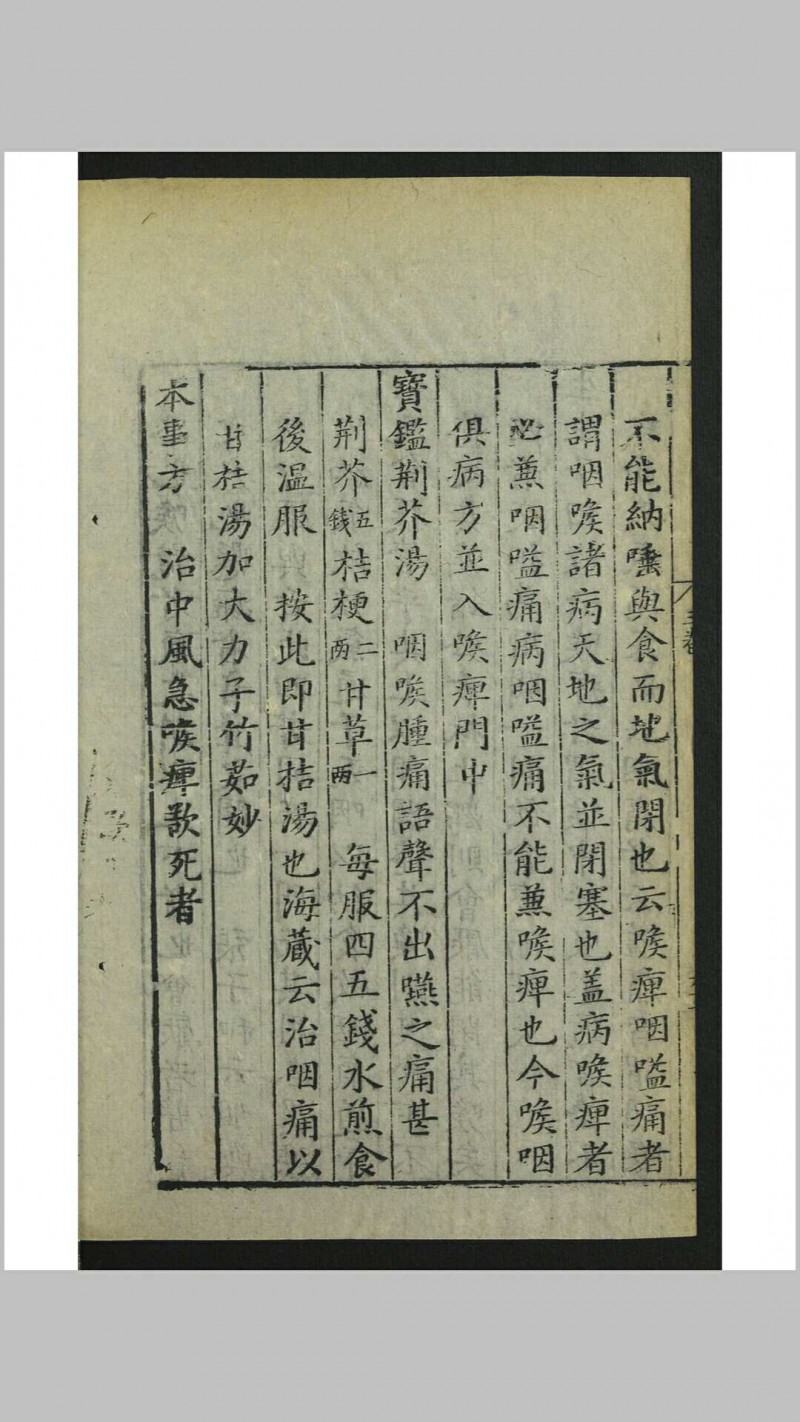 不能納唾與食而地氣閉也云喉痺咽嗌痛者
謂咽喉諸病天地之氣並閉塞也盖病喉痺者
必蕪咽嗌痛病咽嗌痛不能蕪喉痺也今喉咽
俱病方並入喉痺門中
寶鑑荆芥湯 咽喉腫痛語聲不出嚥之痛甚
荆芥五錢桔梗二两甘草一两 每服四五錢水煎食
後温服 按此即甘桔湯也海蔵云治咽痛以
甘桔湯加大力子竹茹妙
本事方 治中風急喉痺欲死者